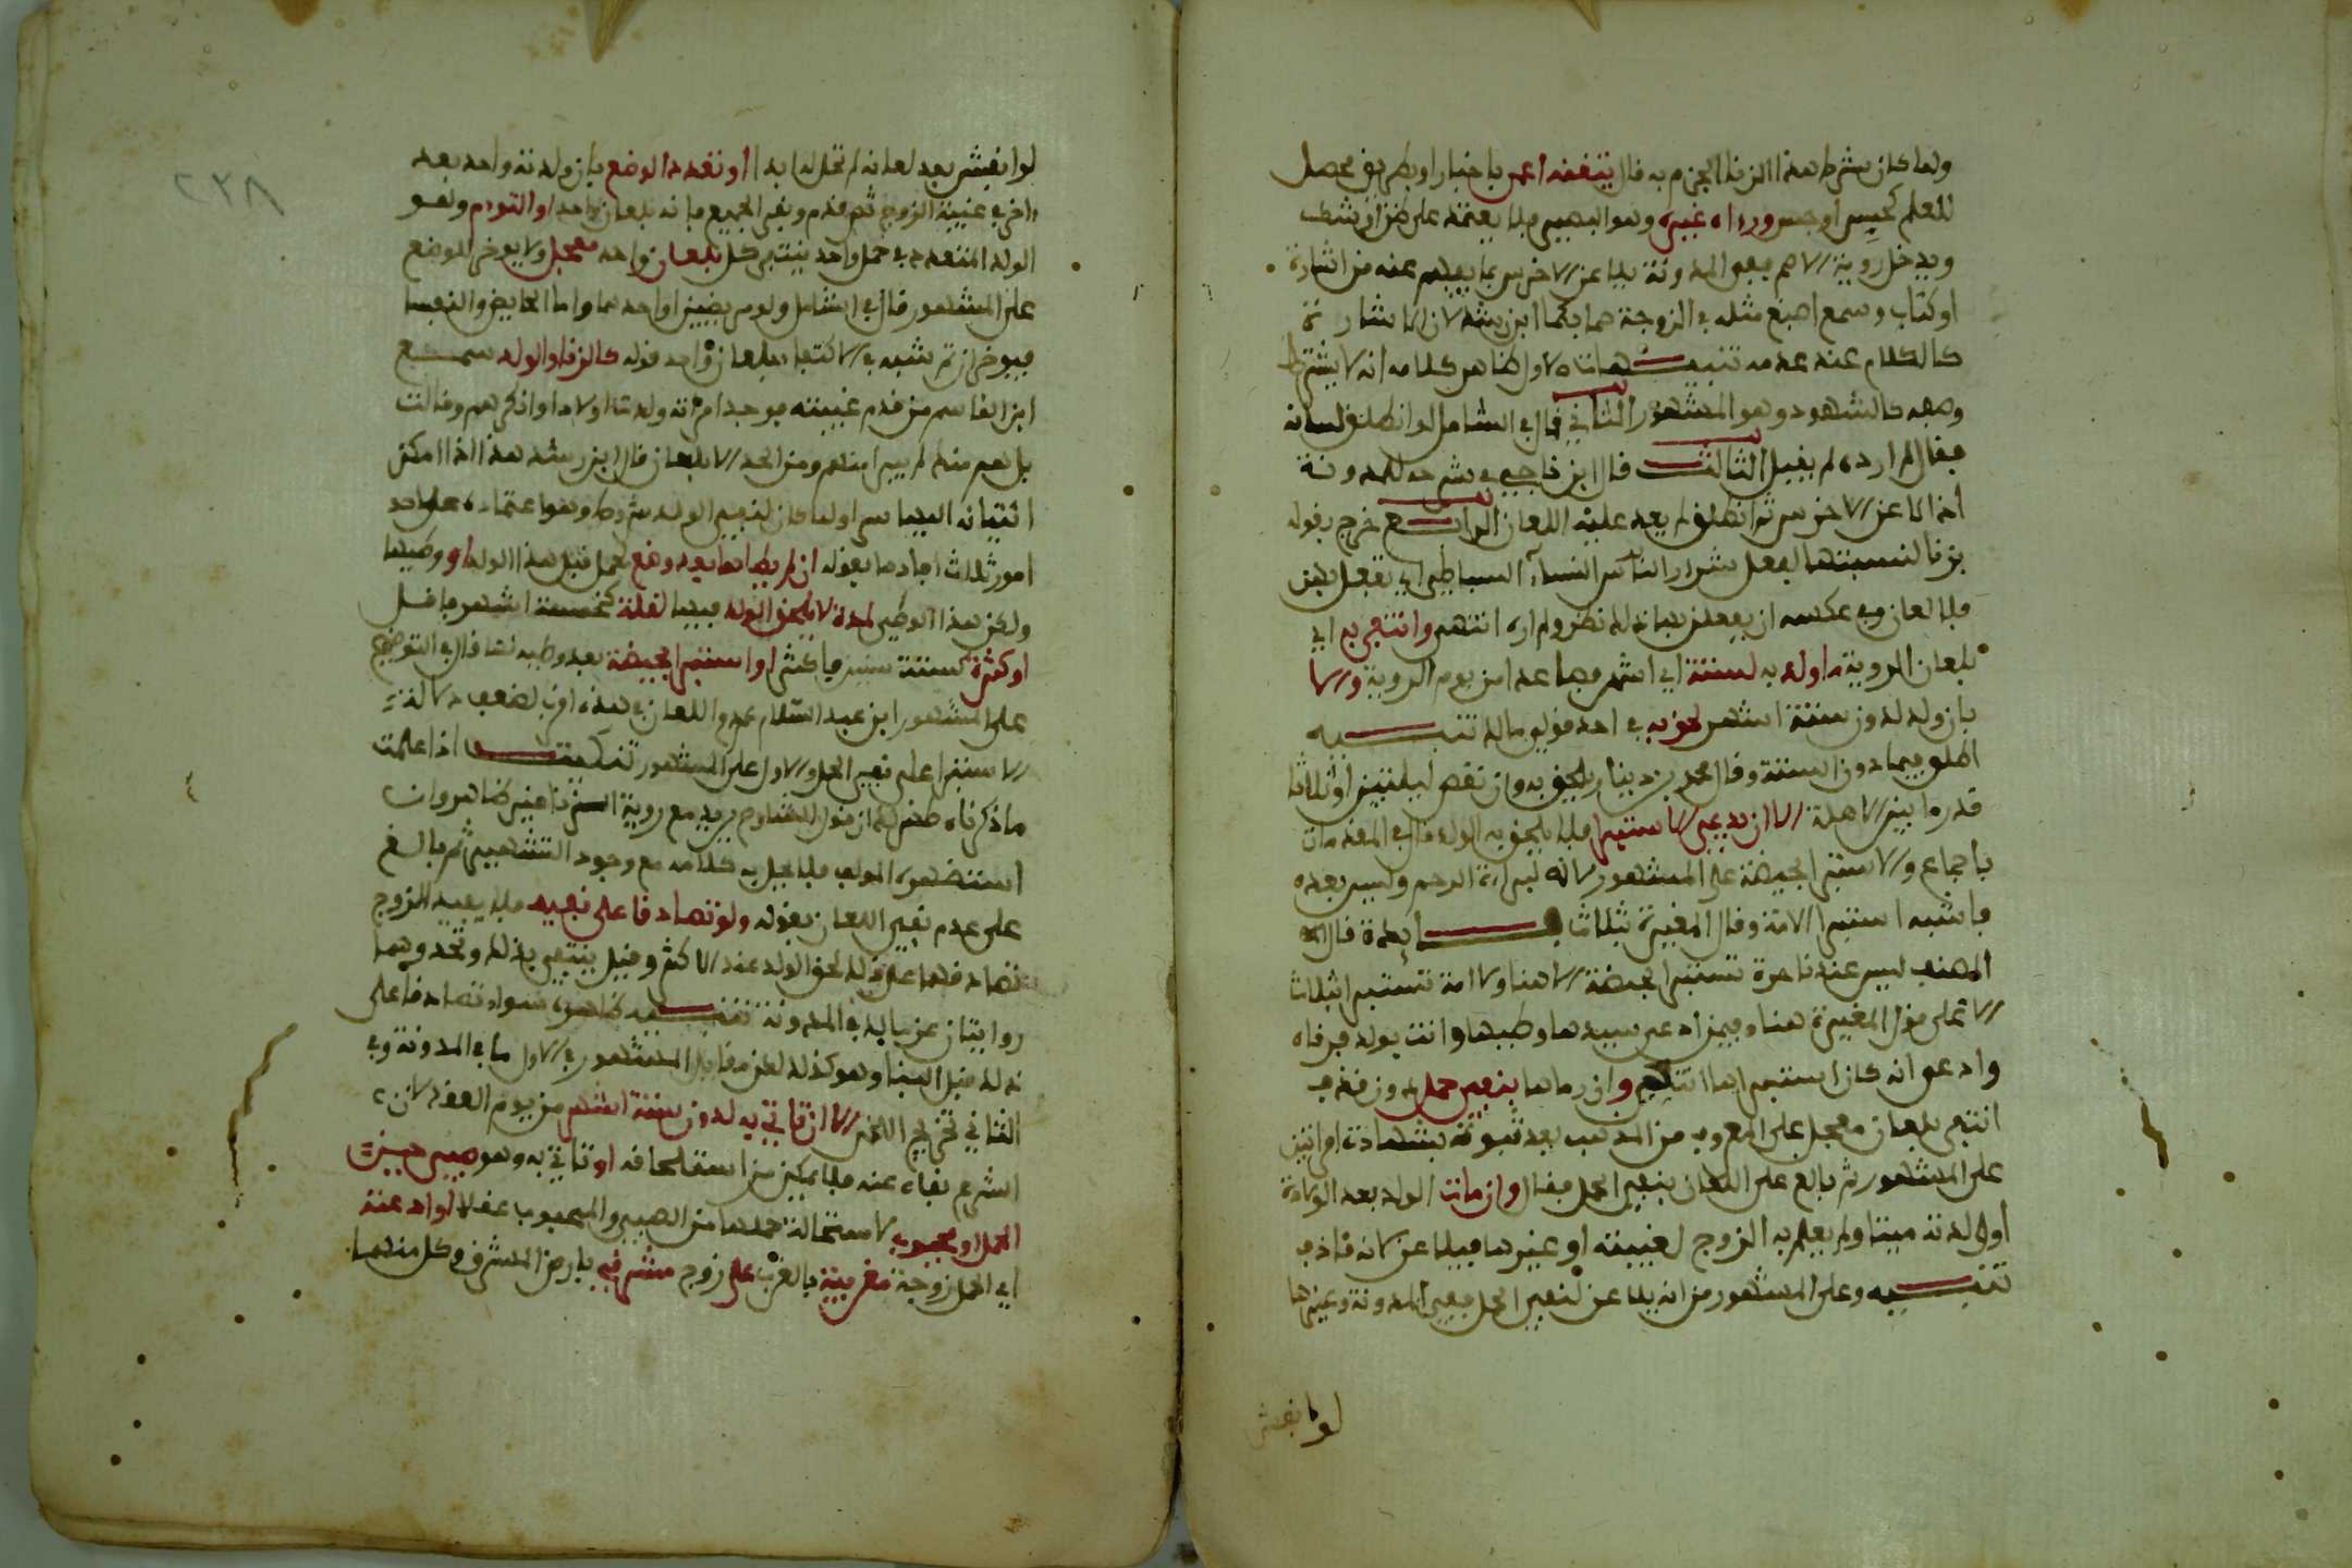 ولما كان شرط هذا الزنا الجزم به قال بتيقنه اعمى باخبار او بطريق محصل
للعلم كجس او حس ورءاه غيره وهو البصير فلا يعتمد على ظن ان شك
ويدخل روية الاصم ففي المدونة يلاعن الاخرس بما يفهم عنه من اشارة
او كتاب وسمع اصبغ مثله في الزوجة صما بكما ابن رشد لان الاشارة
كالكلام عند عدمه تنبيهات الاول ظاهر كلامه انه لا يشترط
وصفه كالشهود وهو المشهور الثاني قال في الشامل لو انطلق لسانه
فقال لم ارده لم يقبل الثالث قال ابن ناجي في شرحه للمدونة
اذا لاعن الاخرس ثم انطلق لم يعد عليه اللعان الرابع خرج بقوله
بزنا لنسبتها لفعل شرار النساء السباطي اي تفعل بهن
فلا لعان وفي عكسه ان يفعلن بها ذلك نظر ولم اره انتهى وانتفى به اي
بلعان الروية ما ولد به لستة اي اشهر فصاعدا من يوم الروية والا
بان ولد لدون ستة اشهر لحق به في احد قولي مالك تنبيه
اطلق فيما دون الستة وقال محمد بن دينار يلحق به وان نقص ليلتين او ثلاثا
قدر ما بين الاهلة الا ان يدعي الاستبرا فلا يلحق به الولد قال في المقدمات
باجماع والاستبرا بحيضة على المشهور لانه لبراءة الرحم وليس بعده
فاشبه استبرا الامة وقال المغيرة بثلاث فايدة قال
المصنف ليس عندنا حرة تستبرا بحيضة الا هنا ولا امة تستبرا بثلاث
الا على قول المغيرة هنا وفيمن ادعى سيدها وطيها واتت بولد فرفاه
وادعى انه كان استبراها انتفى وان رماها بنفي حمل دون قذف
انتفى بلعان معجل على المعروف من المذهب بعد ثبوته بشهادة امراتين
على المشهور ثم بالغ على اللعان بنفي الحمل فقال وان مات الولد بعد الولادة
او ولدته ميتا ولم يعلم به الزوج لغيبته او غيرها فيلاعن لانه قاذف
تنبيه وعلى المشهور من انه يلاعن لنفي الحمل ففي المدونة وغيرها
لو انفش
٢٣٨
لو انفش بعد لعانه لم تحل له ابدا او تعدد الوضع بان ولدته واحد بعد
ءاخر في غيبة الزوج ثم قدم ونفى الجميع فانه بلعان واحد او التوءم وهو
الولد المتعدد في حمل واحد ينتفي كل بلعان واحد معجل ولا يوخر للوضع
على المشهور قال في الشامل ولو مريضين او احدهما واما الحايض والنفسا
فيوخران ثم شبه في الاكتفا بلعان واحد قوله كالزنا والولد سمع
ابن القاسم من قدم غيبته فوجد امراته ولدت اولادا وانكرهم وقالت
بل هم منه لم يبرا منهم ومن الحد الا بلعان قال ابن رشد هذا اذا امكن
اتيانه اليها سرا ولما كان لنفي الولد شروط وهو اعتماده على احد
امور ثلاث افادها بقوله ان لم يطاها بعد وضع لحمل قبل هذا الولد او وطيها
ولكن هذا الوطي لمدة لا يلحق الولد فيها لقلة كخمسة اشهر فاقل
او كثرة كستة سنين فاكثر او استبرا بحيضة بعد وطيه لها قال في التوضيح
على المشهور ابن عبد السلام عدم اللعان في هذه اقرب لضعف دلالة
الاستبرا على نفي الحمل والاول على المشهور تنكيت اذا علمت
ما ذكرناه ظهر لك ان قول الشارح يريد مع روية الزنا غير ظاهر وان
استظهره المولف فلا يحمل به كلامه مع وجود التشهير ثم بالغ
على عدم نفي اللعان بقوله ولو تصادقا على نفيه فلا يفيد الزوج
تصادقهما على ذلك لحق الولد عند الاكثر وقيل ينتفي بذلك وتحد وهما
روايتان عن مالك في المدونة تنبيه ظاهره سواء تصادقا على
ذلك قبل البنا وهو كذلك لكن مقابل المشهور في الاول ما في المدونة وفي
الثاني تخريج اللخمي الا ان تاتي به لدون ستة اشهر من يوم العقد لان
الشرع نفاه عنه فلا يمكن من استلحاقه او تاتي به وهو صبي حين
الحمل او مجبوب لاستحالة حملها من الصبي والمجبوب عقلا او ادعته
اي الحمل زوجة مغربية بالغرب على زوج مشرقي بارض المشرق وكل منهما